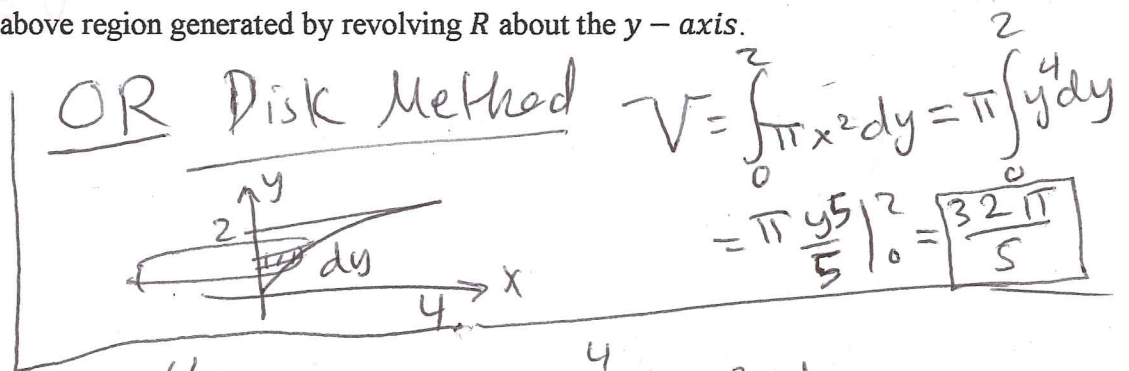 above region generated by revolving R about the y – axis.
OR Disk Method
V = ∫₀² πx²dy = π∫₀² y⁴dy
= π y⁵/5 |₀² = 32π/5
y
2
dy
x
4
4